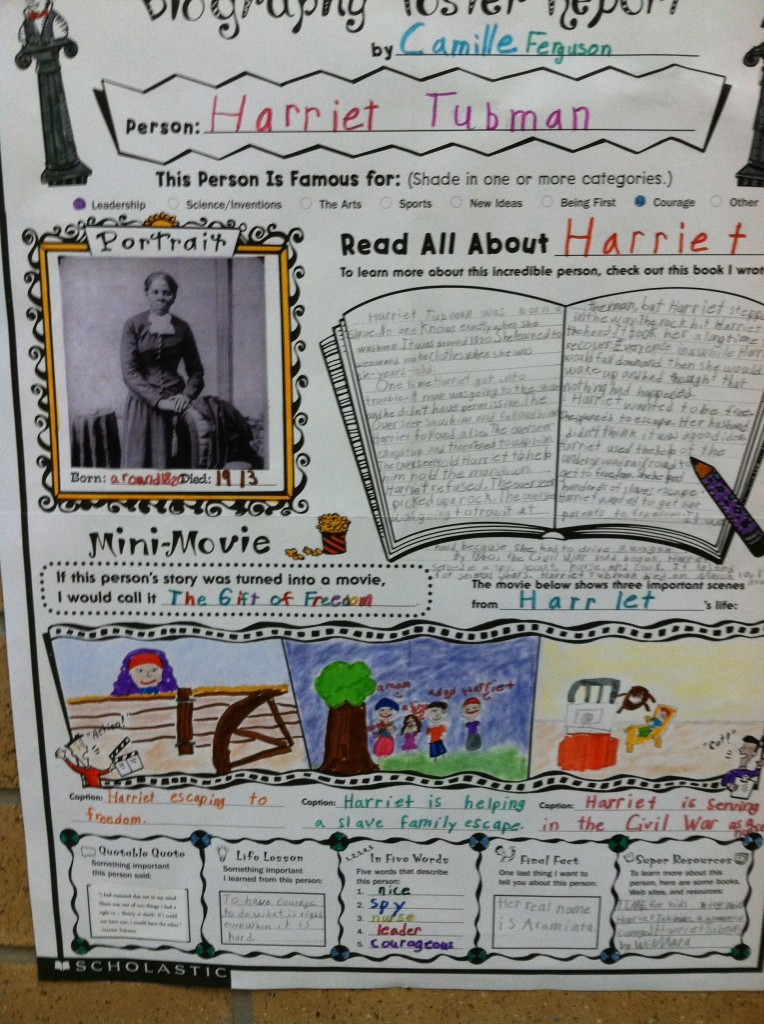 Biography Poster Report
by Camille Ferguson
Person: Harriet Tubman
This Person Is Famous for: (Shade in one or more categories.)
Leadership Science/Inventions The Arts Sports New Ideas Being First Courage Other
Portrait
Born: around 1820 Died: 1913
Read All About Harriet
To learn more about this incredible person, check out this book I wrot
Harriet Tubman was born a
slave. No one knows exactly when she
was born. It was around 1820. She learned to
weave and make clothes when she was
six-years-old.
One time Harriet got into
trouble. A man was going to the
and he didn't have permission. The
Overseer saw him and followed him.
Harriet followed also. The overseer
caught up and threatened to whip him.
The overseer told Harriet to help
him hold the man down.
Harriet refused. The overseer
picked up a rock. The overseer
was going to throw it at
the man, but Harriet stepped
in the way. The rock hit Harriet in
the head. It took her a long time
recover. Every once in a while Harriet
would fall down and. Then she would
wake up and thought that
nothing had happened.
Harriet wanted to be free.
She planned to escape. Her husband
didn't think it was a good idea.
Harriet used the help of the
underground railroad to
get to freedom. She helped
hundreds of slaves escape.
Harriet went to get her
parents to freedom. It was
hard because she had to drive a wagon.
When the Civil War began, Harriet
served as a spy, scout, nurse, and cook. It lasted
for several years. Harriet Tubman died on March
Mini-Movie
If this person's story was turned into a movie,
I would call it The Gift of Freedom.
The movie below shows three important scenes
from Harriet 's life:
"Action!"
Harriet
"Cut!"
Caption: Harriet escaping to
freedom.
Caption: Harriet is helping
a slave family escape.
Caption: Harriet is serving
in the Civil War as a nurse
Quotable Quote
Something important
this person said:
"I had reasoned this out in my mind.
There was one of two things I had a
right to - liberty or death. If I could
not have one, I would have the other."
-Harriet Tubman
Life Lesson
Something important
I learned from this person:
To have courage
to do what is right
even when it is
hard.
1,2,3,4,5
In Five Words
Five words that describe
this person:
1. nice
2. spy
3. nurse
4. leader
5. courageous
Final Fact
One last thing I want to
tell you about this person:
Her real name
is Araminta.
Super Resources
To learn more about this
person, here are some books,
Web sites, and resources:
TIME for kids Biographies
Harriet Tubman, A
Harriet Tubman
by Wil Mara
SCHOLASTIC